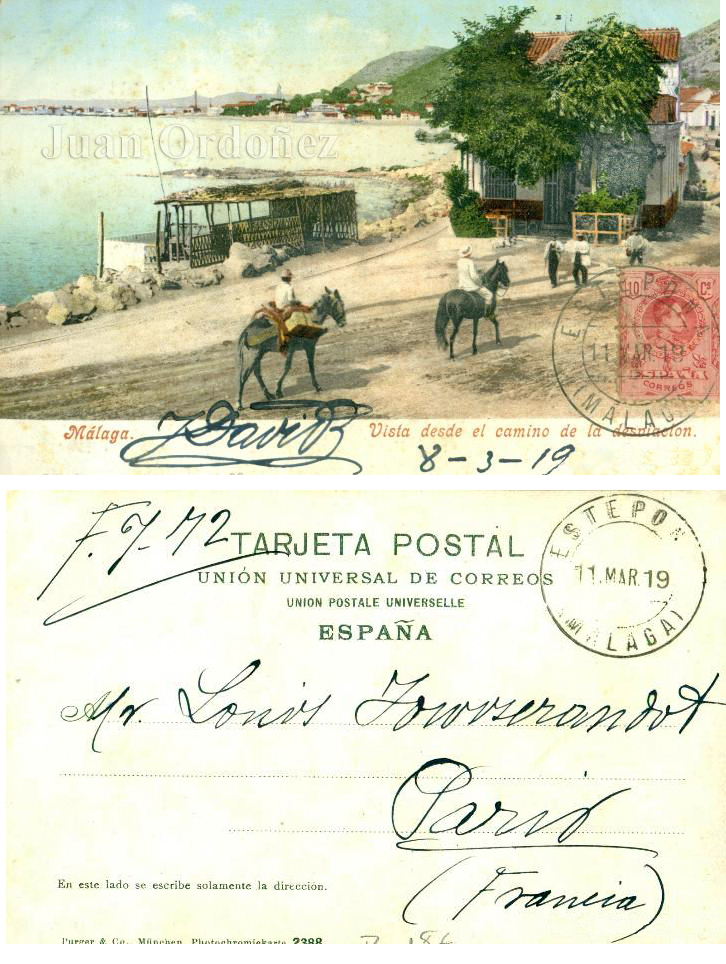 Juan Ordoñez
10 Cs
ESTEPONA
11.MAR.19
(MALAGA)
ESPAÑA
CORREOS
Málaga. Vista desde el camino de la desviacion.
J David
8-3-19
F. 7-72
TARJETA POSTAL
UNIÓN UNIVERSAL DE CORREOS
UNION POSTALE UNIVERSELLE
ESPAÑA
ESTEPONA
11.MAR.19
(MALAGA)
Mr. Louis
Paris
(Francia)
En este lado se escribe solamente la dirección.
Purger & Co., München, Photochromiekarte 2388